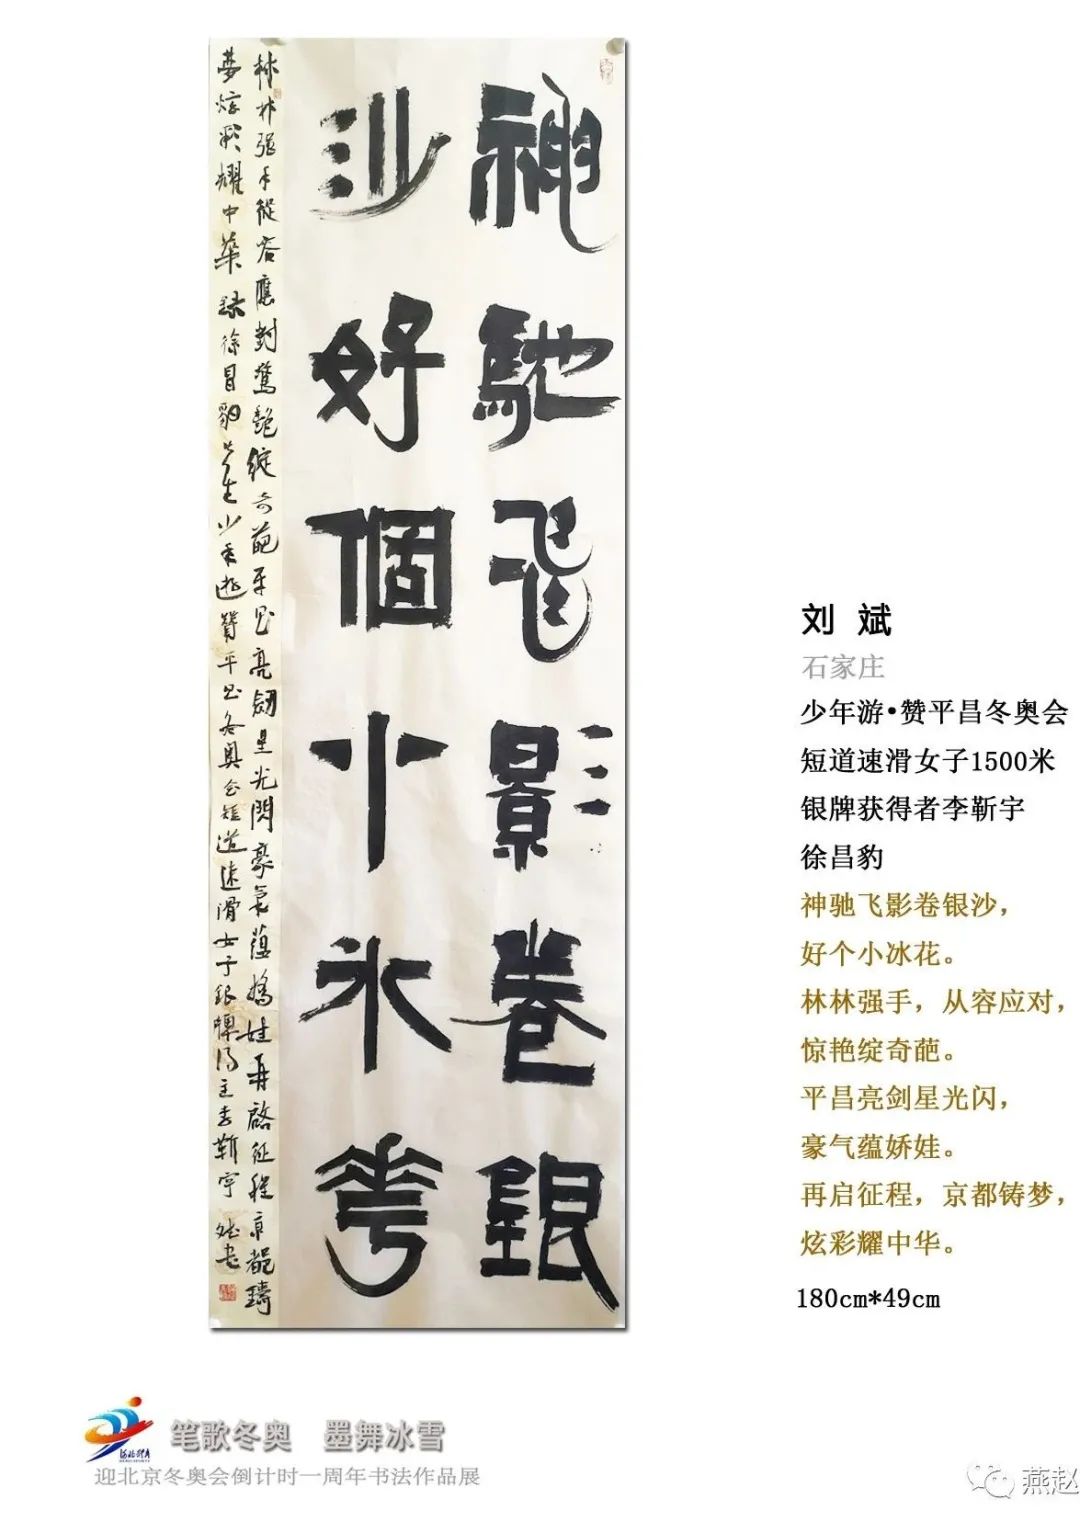 神馳飛影卷銀
沙好個小氷華
林林强手從容應對驚艷綻奇葩平昌亮劍星光閃豪氣蘊嬌娃再啓征程京都鑄
夢炫彩耀中華 録徐昌豹先生少年遊贊平昌冬奥会短道速滑女子銀牌得主李靳宇 斌書
刘 斌
石家庄
少年游•赞平昌冬奥会
短道速滑女子1500米
银牌获得者李靳宇
徐昌豹
神驰飞影卷银沙，
好个小冰花。
林林强手，从容应对，
惊艳绽奇葩。
平昌亮剑星光闪，
豪气蕴娇娃。
再启征程，京都铸梦，
炫彩耀中华。
180cm*49cm
河北体育
笔歌冬奥 墨舞冰雪
迎北京冬奥会倒计时一周年书法作品展
燕赵